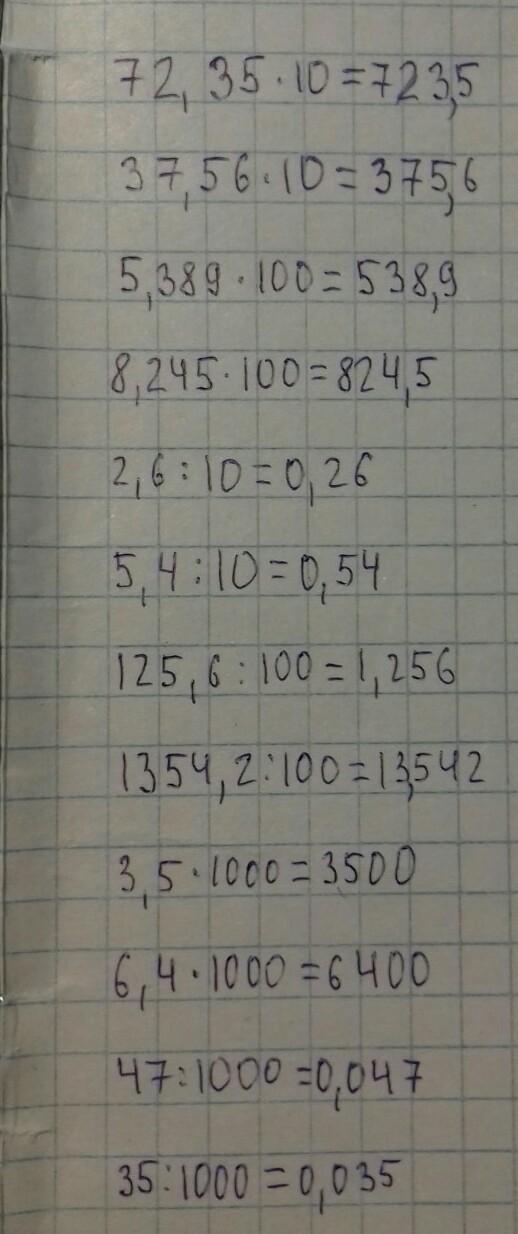 72,35·10=723,5
37,56·10=375,6
5,389·100=538,9
8,245·100=824,5
2,6:10=0,26
5,4:10=0,54
125,6:100=1,256
1354,2:100=13,542
3,5·1000=3500
6,4·1000=6400
47:1000=0,047
35:1000=0,035